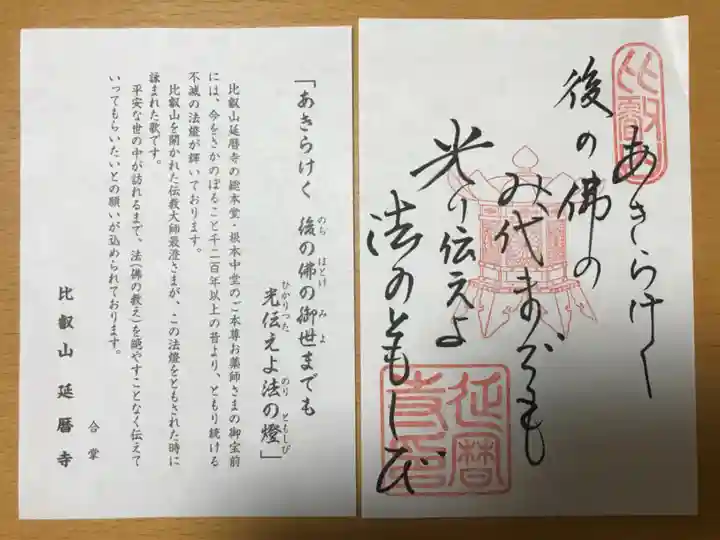 「あきらけく 後の佛の御世までも
のち ほとけ みよ
光伝えよ法の燈」
ひかりつた のり ともしび
比叡山延暦寺の総本堂・根本中堂のご本尊お薬師さまの御宝前
には、今をさかのぼること千二百年以上の昔より、ともり続ける
不滅の法燈が輝いております。
比叡山を開かれた伝教大師最澄さまが、この法燈をともされた時に
詠まれた歌です。
平安な世の中が訪れるまで、法(佛の教え)を絶やすことなく伝えて
いってもらいたいとの願いが込められております。
合掌
比叡山 延暦寺
比叡山
あきらけく
後の佛の
み代までも
光り伝えよ
法のともしび
延暦寺